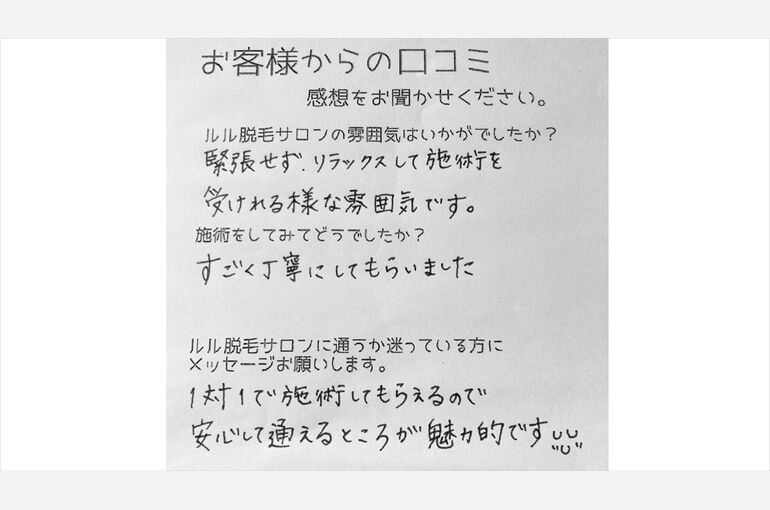 お客様からの口コミ
感想をお聞かせください。
ルル脱毛サロンの雰囲気はいかがでしたか？
緊張せず、リラックスして施術を
受けれる様な雰囲気です。
施術をしてみてどうでしたか？
すごく丁寧にしてもらいました
ルル脱毛サロンに通うか迷っている方に
メッセージお願いします。
1対1で施術してもらえるので
安心して通えるところが魅力的です